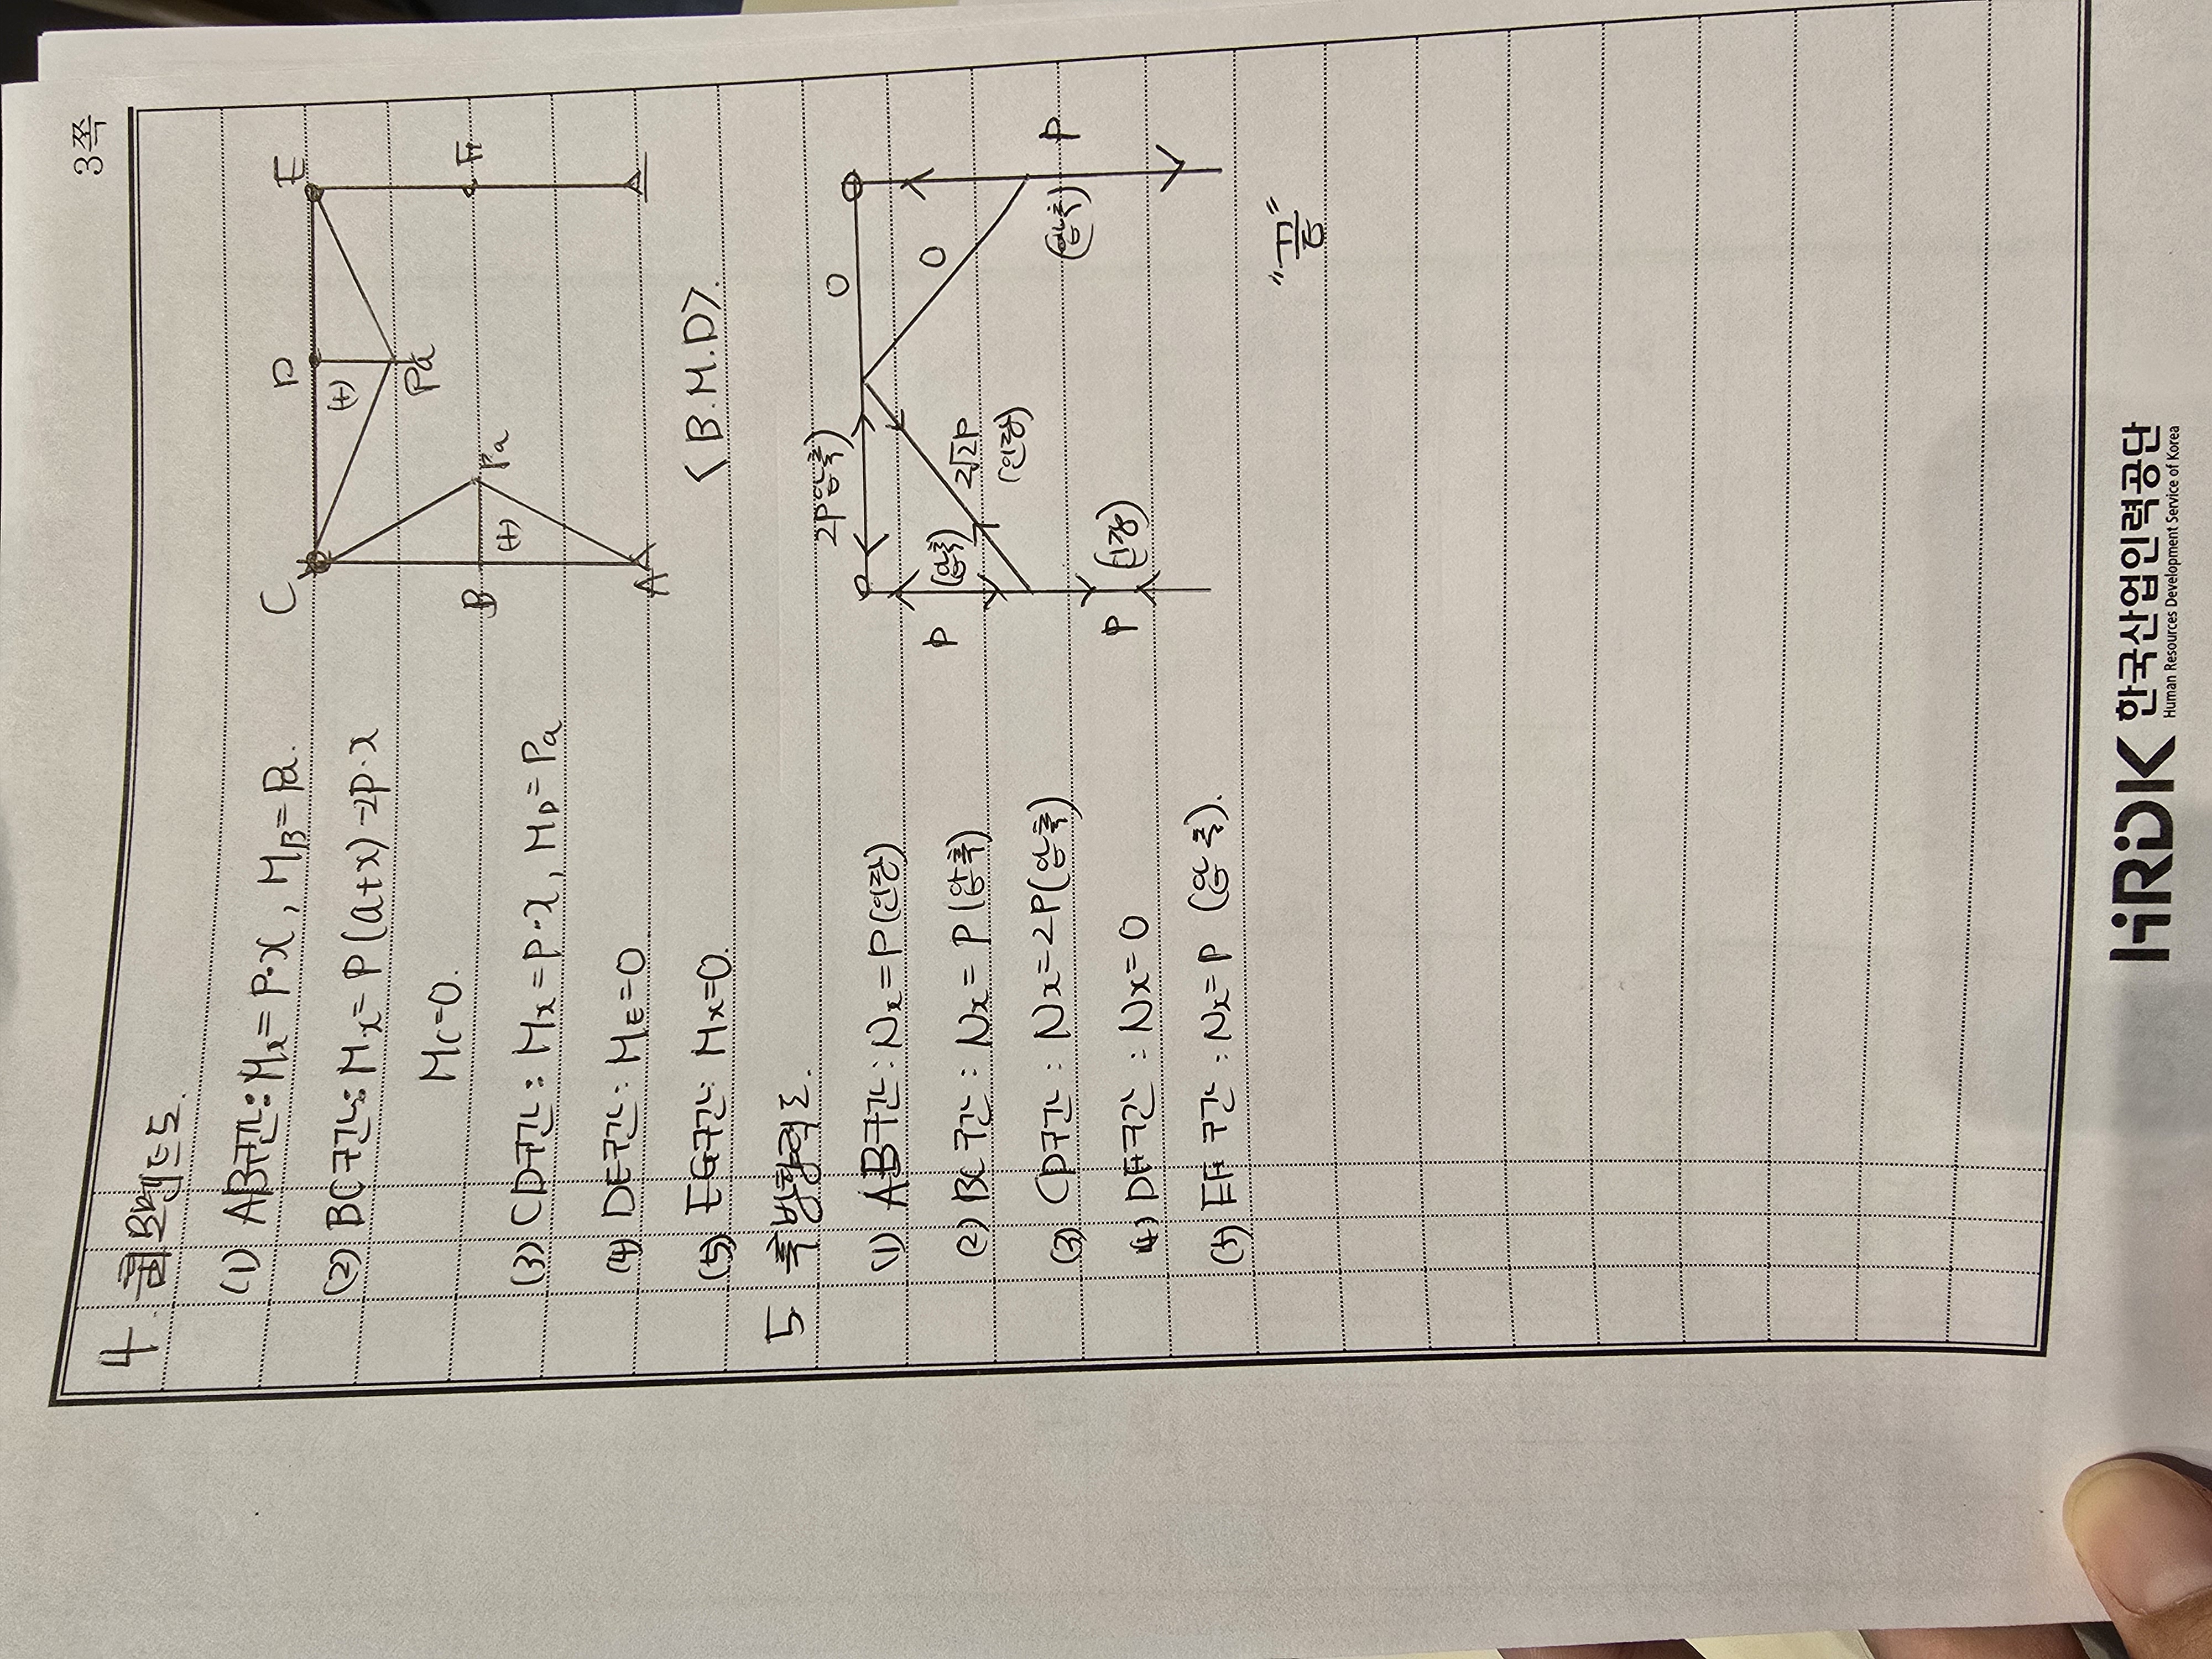 3쪽
4. 휨모멘트도.
(1) AB구간: Mx = P·x, MB = Pa.
(2) BC구간: Mx = P(a+x)-2P·x
Mc=0.
(3) CD구간: Mx = P·x, MD = Pa
(4) DE구간: ME=0
(5) EG구간: Mx=0.
C
D
E
(+)
Pa
B
(+)
Pa
F
A
<B.M.D>.
5 축방향력도.
(1) AB구간: Nx = P(인장)
(2) BC구간: Nx = P(압축)
(3) CD구간: Nx=2P(압축)
(4) DE구간: Nx=0
(5) EF구간: Nx=P (압축).
2P(압축)
0
P
(압축)
2√2P
(인장)
0
P
(압축)
P
(인장)
"끝"
HRDK 한국산업인력공단
Human Resources Development Service of Korea